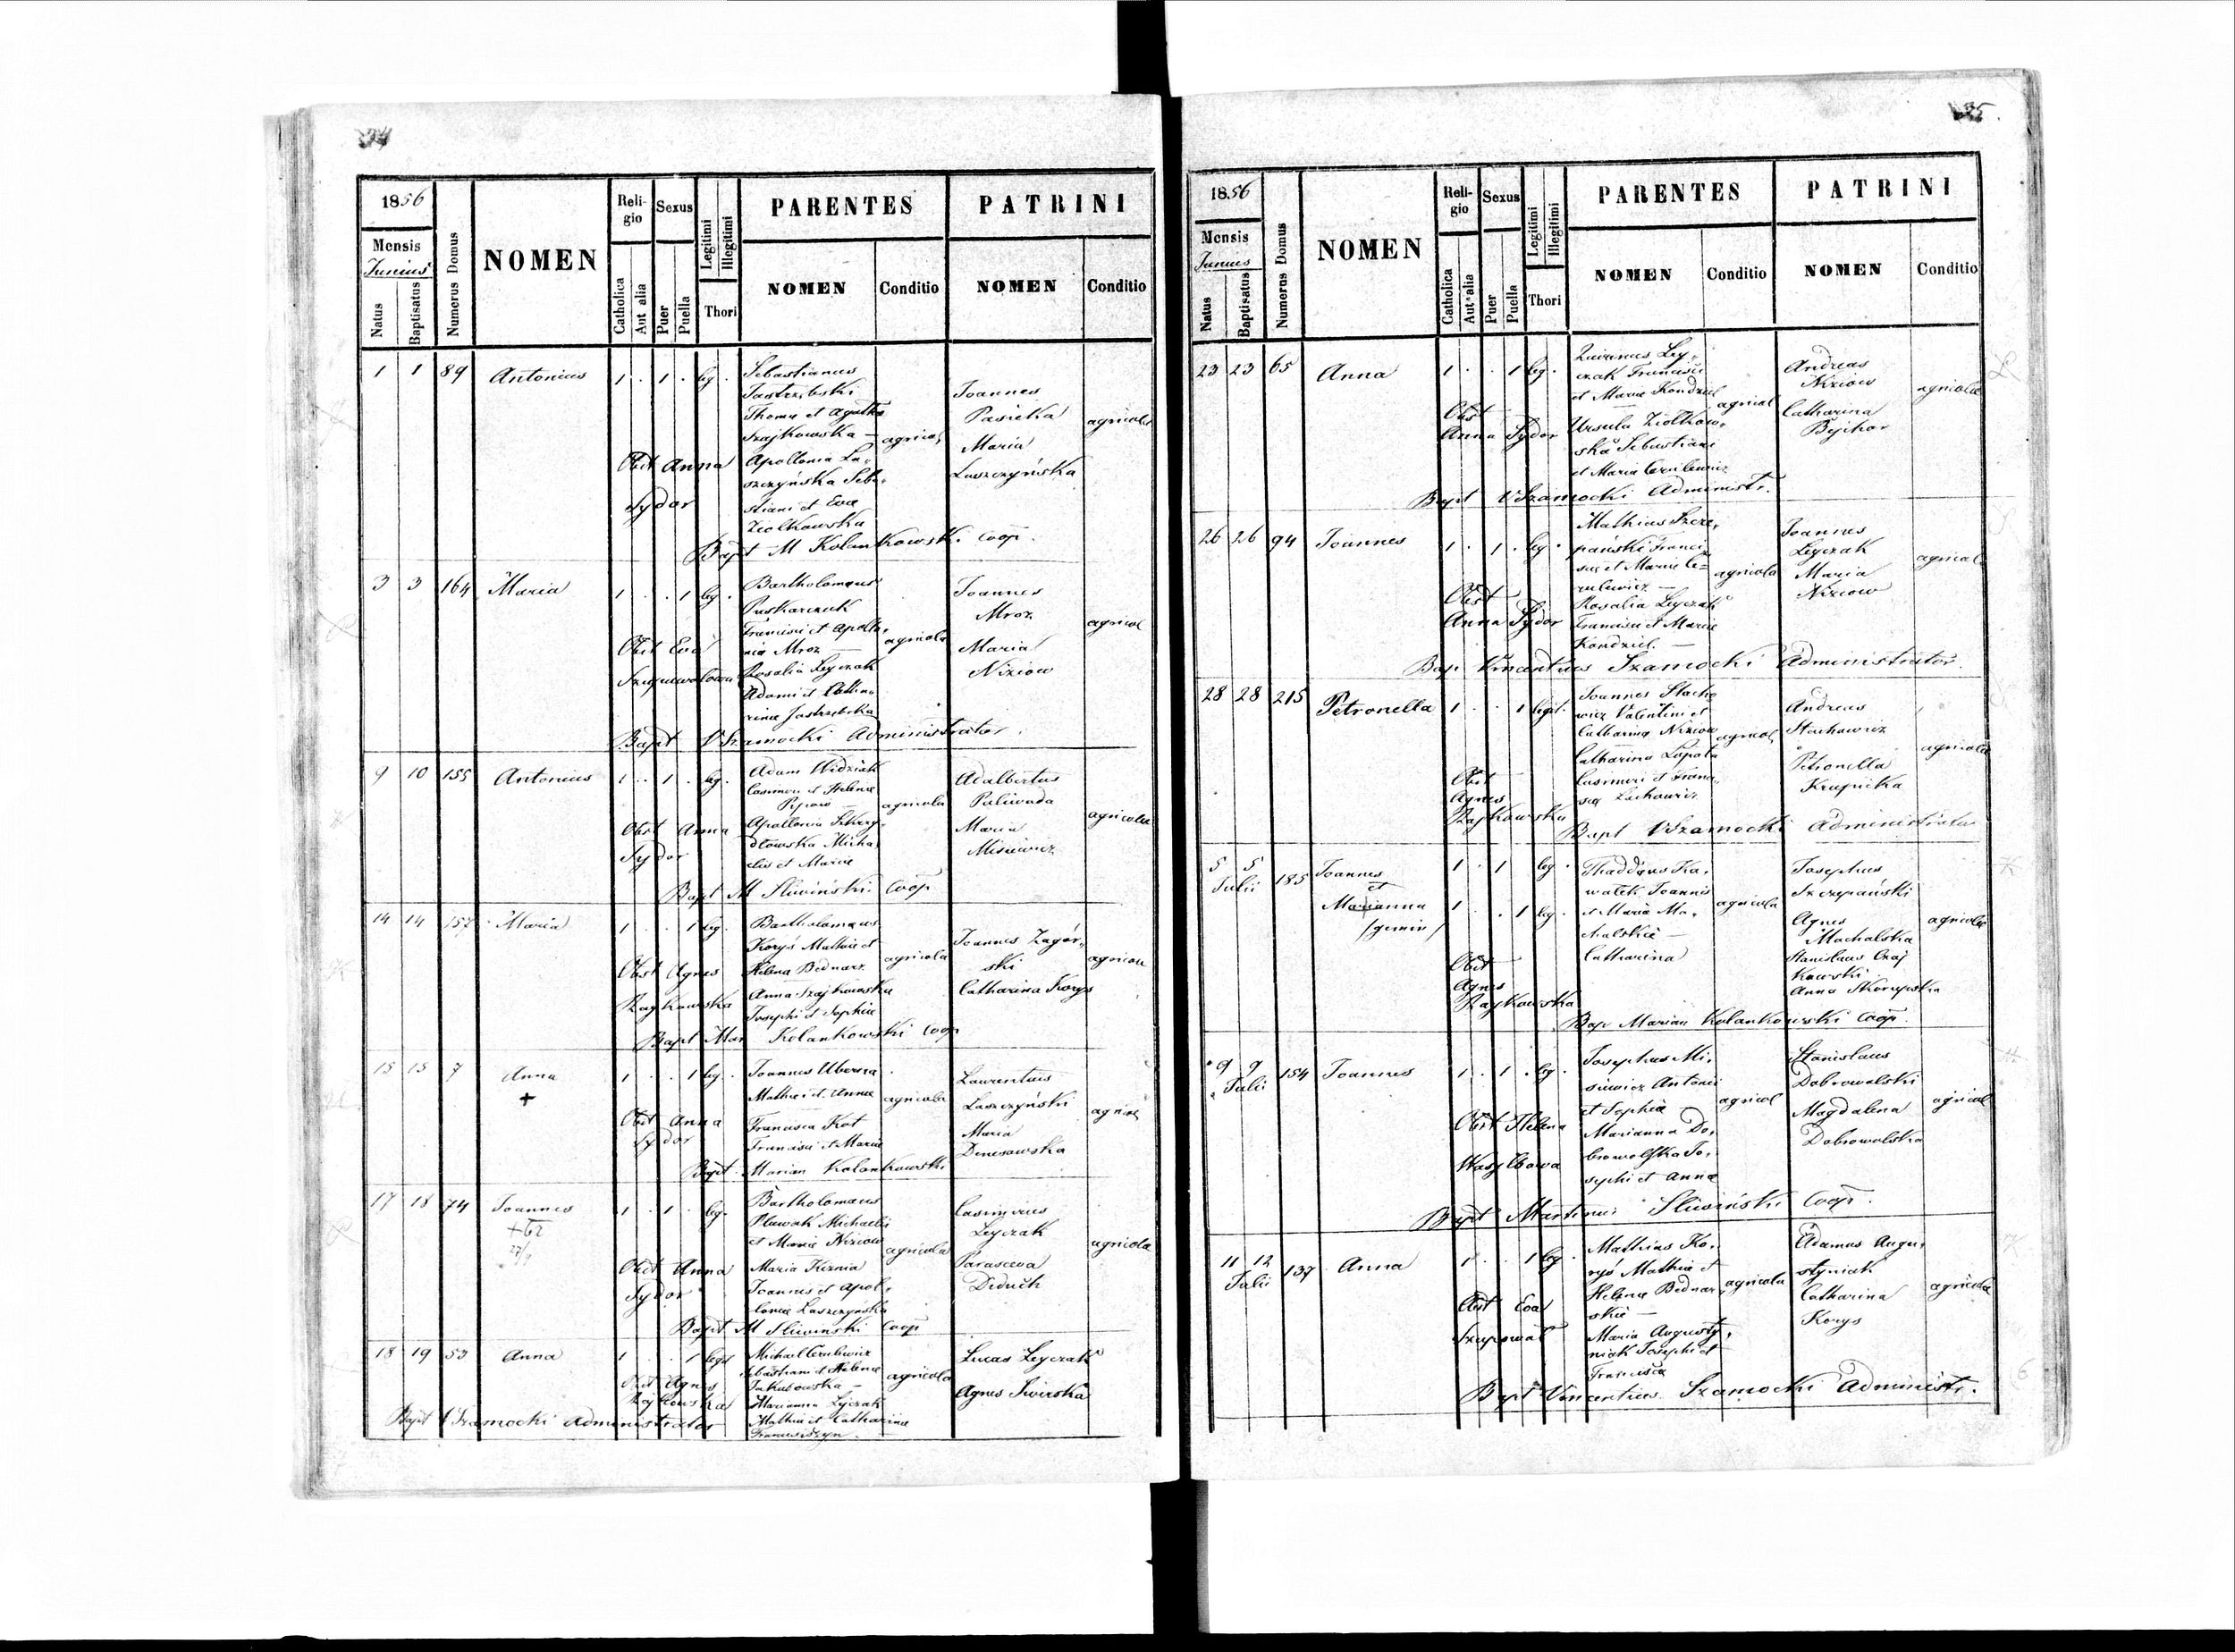 34
1856
Mensis
Junius
Natus
Baptisatus
Numerus Domus
NOMEN
Reli-
gio
Catholica
Aut alia
Sexus
Puer
Puella
Legitimi
Illegitimi
Thori
PARENTES
NOMEN
Conditio
PATRINI
NOMEN
Conditio
1 1 89 Antonius 1 . 1 . leg.
Sebastianus
Jastrzębski
Thomæ et Agatha
Szajkowska —
agricol
Apollonia La-
szczyńska Seba-
stiani et Eva
Ziolkowska
Joannes
Pasieka
Maria
Laszczyńska
agricola
Obst Anna
Sydor
Bapt M Kolankowski Coop.
3 3 164 Maria 1 . . 1 leg.
Bartholomæus
Francisci et Apollo-
nia Mroz —
agricola
Rosalia Leyczak
Adami et Catha-
rina Jastrzębska
Joannes
Mroz
Maria
Niziow
agricol
Obst Eva
Bapt VSzamocki Administrator.
9 10 155 Antonius 1 . 1 . leg.
Adam Widziak
Casimiri et Helenæ
agricola
Apollonia Skrzy-
dłowska Micha
elis et Mariæ
Adalbertus
Paliwoda
Maria
Misiewicz
agricola
Obst Anna
Sydor
Bapt M Sliwiński Coop
14 14 157 Maria 1 . . 1 leg.
Bartholomæus
Koryś Mathiæ et
Helena Bednarz
agricola
Anna Szajkowska
Josephi et Sophiæ
Joannes Zagór-
ski
Catharina Korys
agricola
Obst Agnes
Rajkowska
Bapt Mar Kolankowski Coop
15 15 7 Anna 1 . . 1 leg.
+
Joannes Uberna
Mathei et Anna
agricola
Francisca Kot
Francisci et Mariæ
Laurentius
Laszczyński
Maria
Denesowska
agricol
Obst Anna
Sydor
Bapt. Marian Kolankowski
17 18 74 Joannes 1 . 1 . leg.
+62
27/9
Bartholomæus
Pławak Michaelis
et Mariæ Niziow
agricola
Maria Kiznia
Joannis et Apol-
loniæ Laszczynska
Casimirus
Leyczak
Parasceva
Diduch
agricola
Obst Anna
Sydor
Bapt M Sliwinski Coop
18 19 53 Anna 1 . . 1 legit
Michael Cerulewicz
Sebastiani et Helenæ
Jakubowska —
agricola
Marianna Leyczak
Mathiæ et Catharina
Lucas Leyczak
Agnes Swirska
Obst Agnes
Rajkowska
Bapt VSzamocki Administrator
35
1856
Mensis
Junius
Natus
Baptisatus
Numerus Domus
NOMEN
Reli-
gio
Catholica
Aut alia
Sexus
Puer
Puella
Legitimi
Illegitimi
Thori
PARENTES
NOMEN
Conditio
PATRINI
NOMEN
Conditio
23 23 65 Anna 1 . . 1 leg.
Ley-
czak Francisci
et Mariæ Kondziel
agricol
Ursula Ziółkow-
ska Sebastiani
et Maria Cerulewicz
Andreas
Niziow
Catharina
Bojhor
agricola
Obst
Anna Sydor
Bapt VSzamocki Administr.
26 26 94 Joannes 1 . 1 . leg.
Mathias Szcze-
pański Franci-
sci et Mariæ Ce-
rulewicz —
agricola
Rosalia Leyczak
Francisci et Mariæ
Kondziel. —
Joannes
Leyczak
Maria
Niziow
agricol
Obst
Anna Sydor
Bap Vincentius Szamocki Administrator.
28 28 215 Petronella 1 . . 1 legit.
Joannes Stacho
wicz Valentini et
Catharina Niziow
agricol
Catharina Lapota
Casimiri et Franci-
sca Lachowicz
Andreas
Stachowicz
Petronella
Krupicka
agricola
Obst
Agnes
Rajkowska
Bapt VSzamocki Administrator
5 5
Julii
185 Joannes
et
Marianna
/gemin/
1 . 1 leg.
1 . . 1 leg.
Thaddæus Ka-
wałek Joannis
et Maria Ma-
chalskie —
agricola
Catharina
Josephus
Szczepański
Agnes
Machalska
Stanislaus Czaj
kowski
Anna Skorupska
agricola
Obst
Agnes
Rajkowska
Bap Marian Kolankowski Coop.
9 9
Julii
154 Joannes 1 . 1 . leg.
Josephus Mi-
siewicz Antonii
et Sophiæ
agricol
Marianna Do-
browolska Jo-
sephi et Anna
Stanislaus
Dobrowolski
Magdalena
Dobrowolska
agricol
Obst Helena
Wasylkowa
Bapt Martinus Sliwiński Coop.
11 12
Julii
137 Anna 1 . . 1 leg.
Mathias Ko-
ryś Mathiæ et
Helenæ Bednar-
skie —
agricola
Maria Augusty-
niak Josephi et
Francisca
Adamus Augu-
styniak
Catharina
Korys
agricola
Obst Eva
Bapt Vincentius Szamocki Administr.